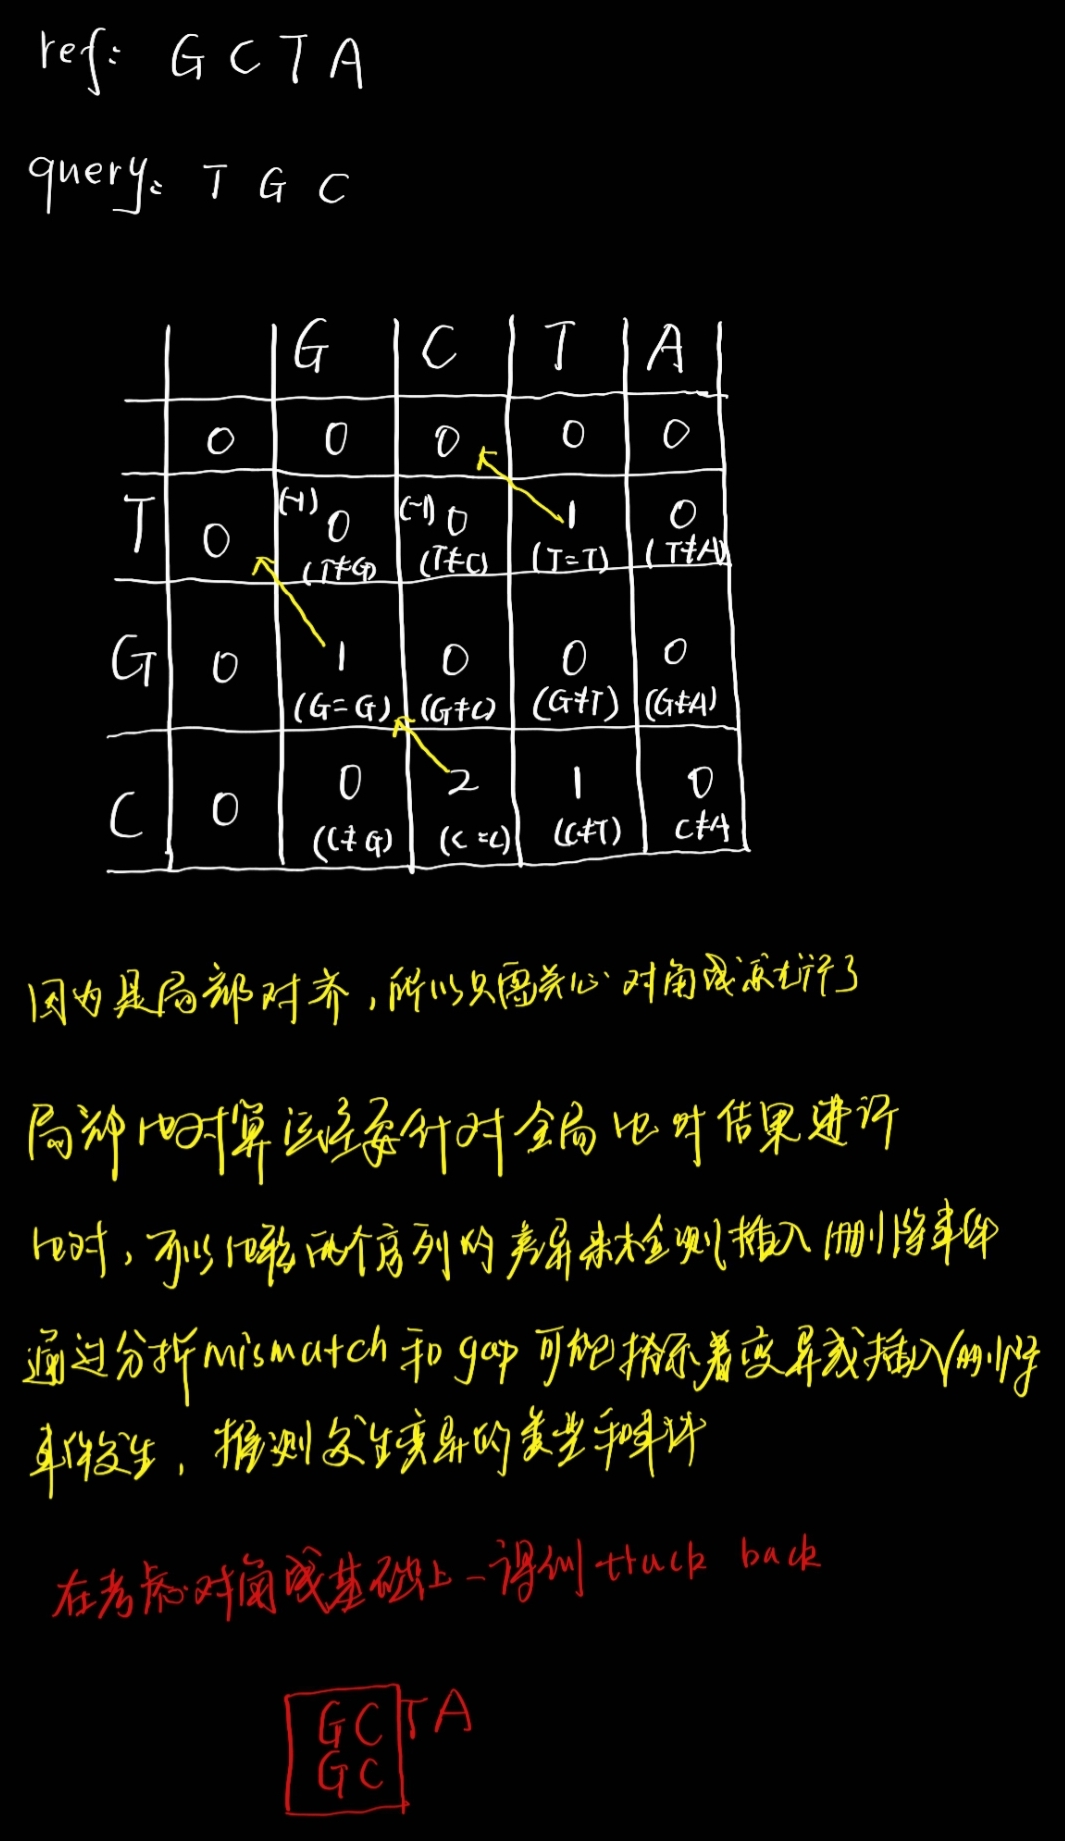 ref: G C T A
query: T G C
G C T A
0 0 0 0 0
T 0 (-1) 0 (-1) 0 1 0
(T≠G) (T≠C) (T=T) (T≠A)
G 0 1 0 0 0
(G=G) (G≠C) (G≠T) (G≠A)
C 0 0 2 1 0
(C≠G) (C=C) (C≠T) C≠A
因为是局部对齐,所以只需关心对角线就行了
局部比对算法主要针对全局比对结果进行
比对,可以比较两个序列的差异来检测插入删除事件
通过分析mismatch和gap可能指示着变异或插入删除
事件发生,推测发生变异的类型和事件
在考虑对角线基础上得到 track back
GCTA
GC